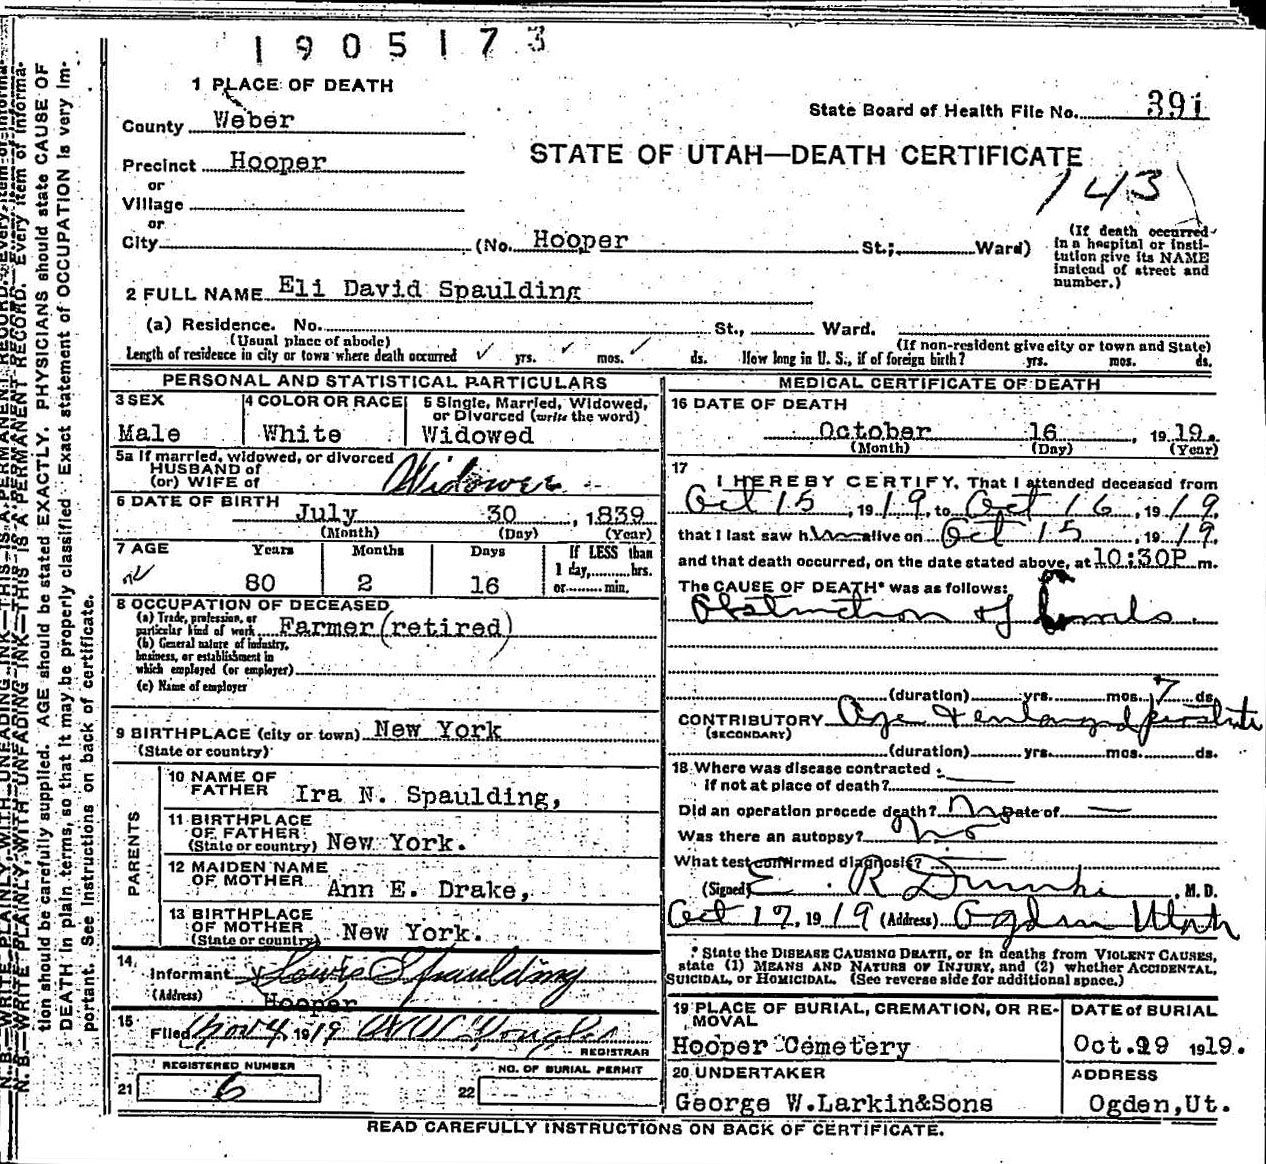 1905173
1 PLACE OF DEATH
State Board of Health File No. 391
County Weber
STATE OF UTAH—DEATH CERTIFICATE
143
Precinct Hooper
or
Village
or
City (No. Hooper St.; Ward)
(If death occurred in a hospital or institution give its NAME instead of street and number.)
2 FULL NAME Eli David Spaulding
(a) Residence. No. St., Ward.
(Usual place of abode) (If non-resident give city or town and State)
Length of residence in city or town where death occurred ✓ yrs. ✓ mos. ✓ ds. How long in U. S., if of foreign birth? yrs. mos. ds.
PERSONAL AND STATISTICAL PARTICULARS
3 SEX
Male
4 COLOR OR RACE
White
5 Single, Married, Widowed,
or Divorced (write the word)
Widowed
5a If married, widowed, or divorced
HUSBAND of
(or) WIFE of Widower
6 DATE OF BIRTH
July 30, 1839
(Month) (Day) (Year)
7 AGE Years Months Days If LESS than
1 day, hrs.
80 2 16 or min.
8 OCCUPATION OF DECEASED
(a) Trade, profession, or
particular kind of work Farmer (retired)
(b) General nature of industry,
business, or establishment in
which employed (or employer)
(c) Name of employer
9 BIRTHPLACE (city or town) New York
(State or country)
PARENTS
10 NAME OF
FATHER Ira N. Spaulding,
11 BIRTHPLACE
OF FATHER
(State or country) New York.
12 MAIDEN NAME
OF MOTHER Ann E. Drake,
13 BIRTHPLACE
OF MOTHER
(State or country) New York.
14 Informant Lewis Spaulding
(Address) Hooper
15 Filed Nov 4, 1919
REGISTRAR
REGISTERED NUMBER
21 6
NO. OF BURIAL PERMIT
22
MEDICAL CERTIFICATE OF DEATH
16 DATE OF DEATH
October 16, 1919.
(Month) (Day) (Year)
17
I HEREBY CERTIFY, That I attended deceased from
Oct 15, 1919, to Oct 16, 1919,
that I last saw him alive on Oct 15, 1919,
and that death occurred, on the date stated above, at 10:30P m.
The CAUSE OF DEATH* was as follows:
Obstruction of Bowels
(duration) yrs. mos. 7 ds.
CONTRIBUTORY Age & enlarged prostate
(SECONDARY)
(duration) yrs. mos. ds.
18 Where was disease contracted
if not at place of death?
Did an operation precede death? No Date of —
Was there an autopsy? No
What test confirmed diagnosis?
(Signed) E. R. M.D.
Oct 17, 1919 (Address) Ogden Utah
* State the DISEASE CAUSING DEATH, or in deaths from VIOLENT CAUSES,
state (1) MEANS AND NATURE OF INJURY, and (2) whether ACCIDENTAL,
SUICIDAL, or HOMICIDAL. (See reverse side for additional space.)
19 PLACE OF BURIAL, CREMATION, OR REMOVAL
Hooper Cemetery
DATE of BURIAL
Oct. 19 1919.
20 UNDERTAKER
George W.Larkin&Sons
ADDRESS
Ogden,Ut.
READ CAREFULLY INSTRUCTIONS ON BACK OF CERTIFICATE.
N. B.—WRITE PLAINLY, WITH UNFADING INK—THIS IS A PERMANENT RECORD. Every item of informa-
tion should be carefully supplied. AGE should be stated EXACTLY. PHYSICIANS should state CAUSE OF
DEATH in plain terms, so that it may be properly classified. Exact statement of OCCUPATION is very im-
portant. See instructions on back of certificate.